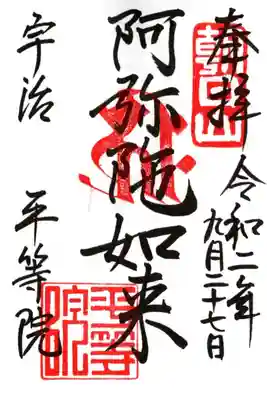 奉拝
朝日山
令和二年
九月二十七日
阿弥陀如来
宇治 平等院
平等院